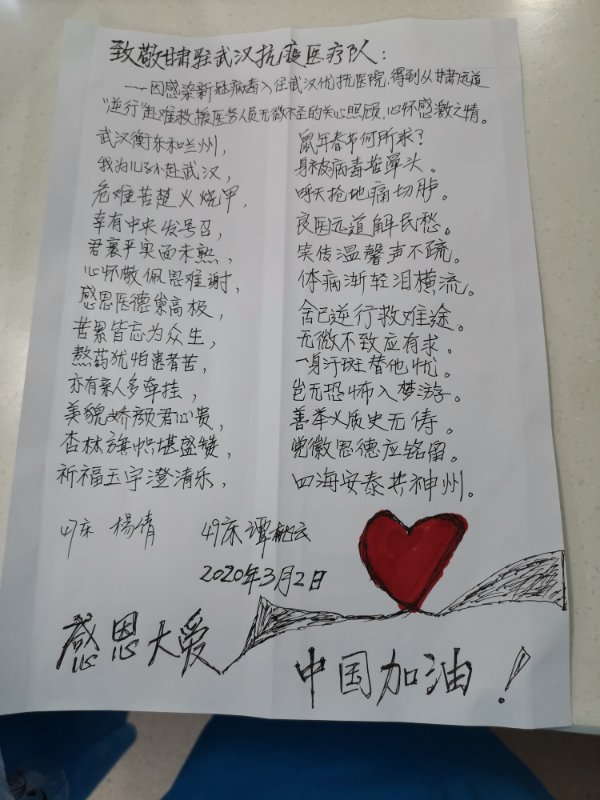 致敬甘肃驻武汉抗疫医疗队：
——因感染新冠病毒入住武汉优抚医院，得到从甘肃远道
“逆行”赴难救援医务人员无微不至的关心照顾，心怀感激之情。
武汉衡东和兰州， 鼠年春节何所求？
我为儿孙赴武汉， 身被病毒苦罩头。
危难苦楚火烧甲， 呼天抢地痛切肤。
幸有中央发号召， 良医远道解民愁。
君裹平实面未熟， 笑传温馨声不疏。
心怀敬佩恩难谢， 体病渐轻泪横流。
感恩医德崇高极， 舍己逆行救难途。
苦累皆忘为众生， 无微不致应有求。
熬药犹怕患者苦， 一身汗斑替他忧。
亦有亲人多牵挂， 岂无恐怖入梦游。
美貌娇颜君心贵， 善举义质史无俦。
杏林旗帜堪盛赞， 党徽恩德应铭留。
祈福玉宇澄清乐， 四海安泰共神州。
47床 杨倩 49床 谭云
2020年3月2日
感恩大爱
中国加油！